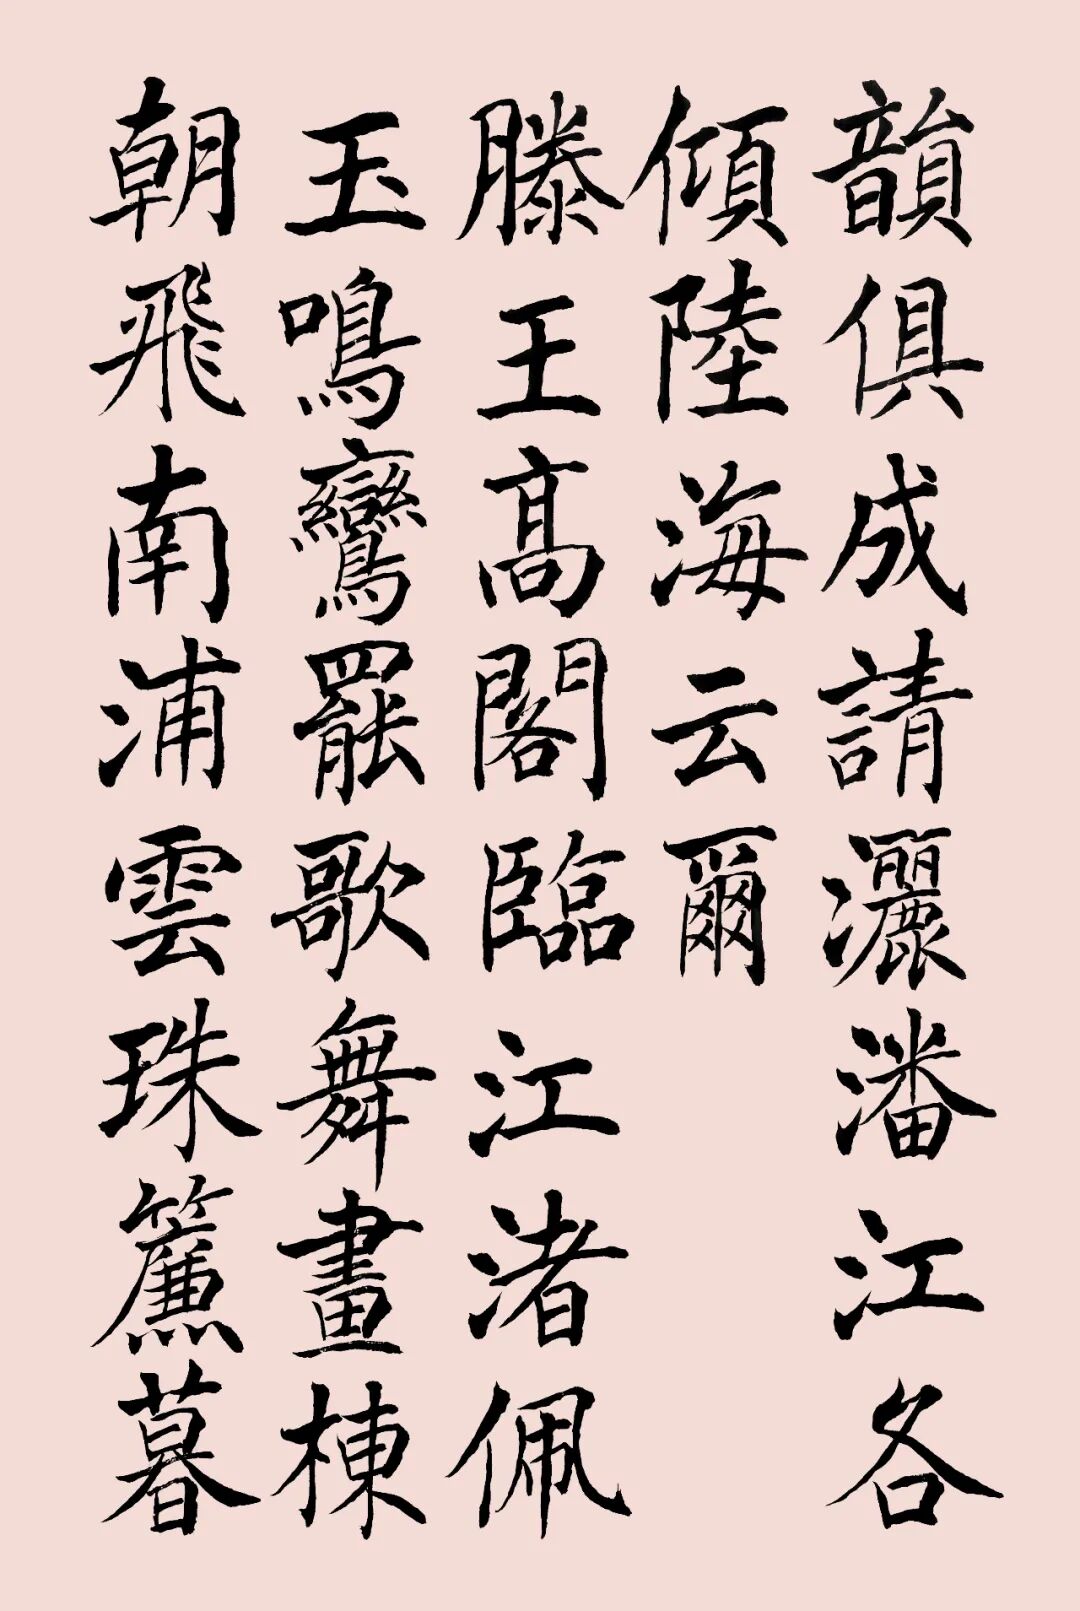 韻俱成請灑潘江各
傾陸海云爾
滕王高閣臨江渚佩
玉鳴鸞罷歌舞畫棟
朝飛南浦雲珠簾暮